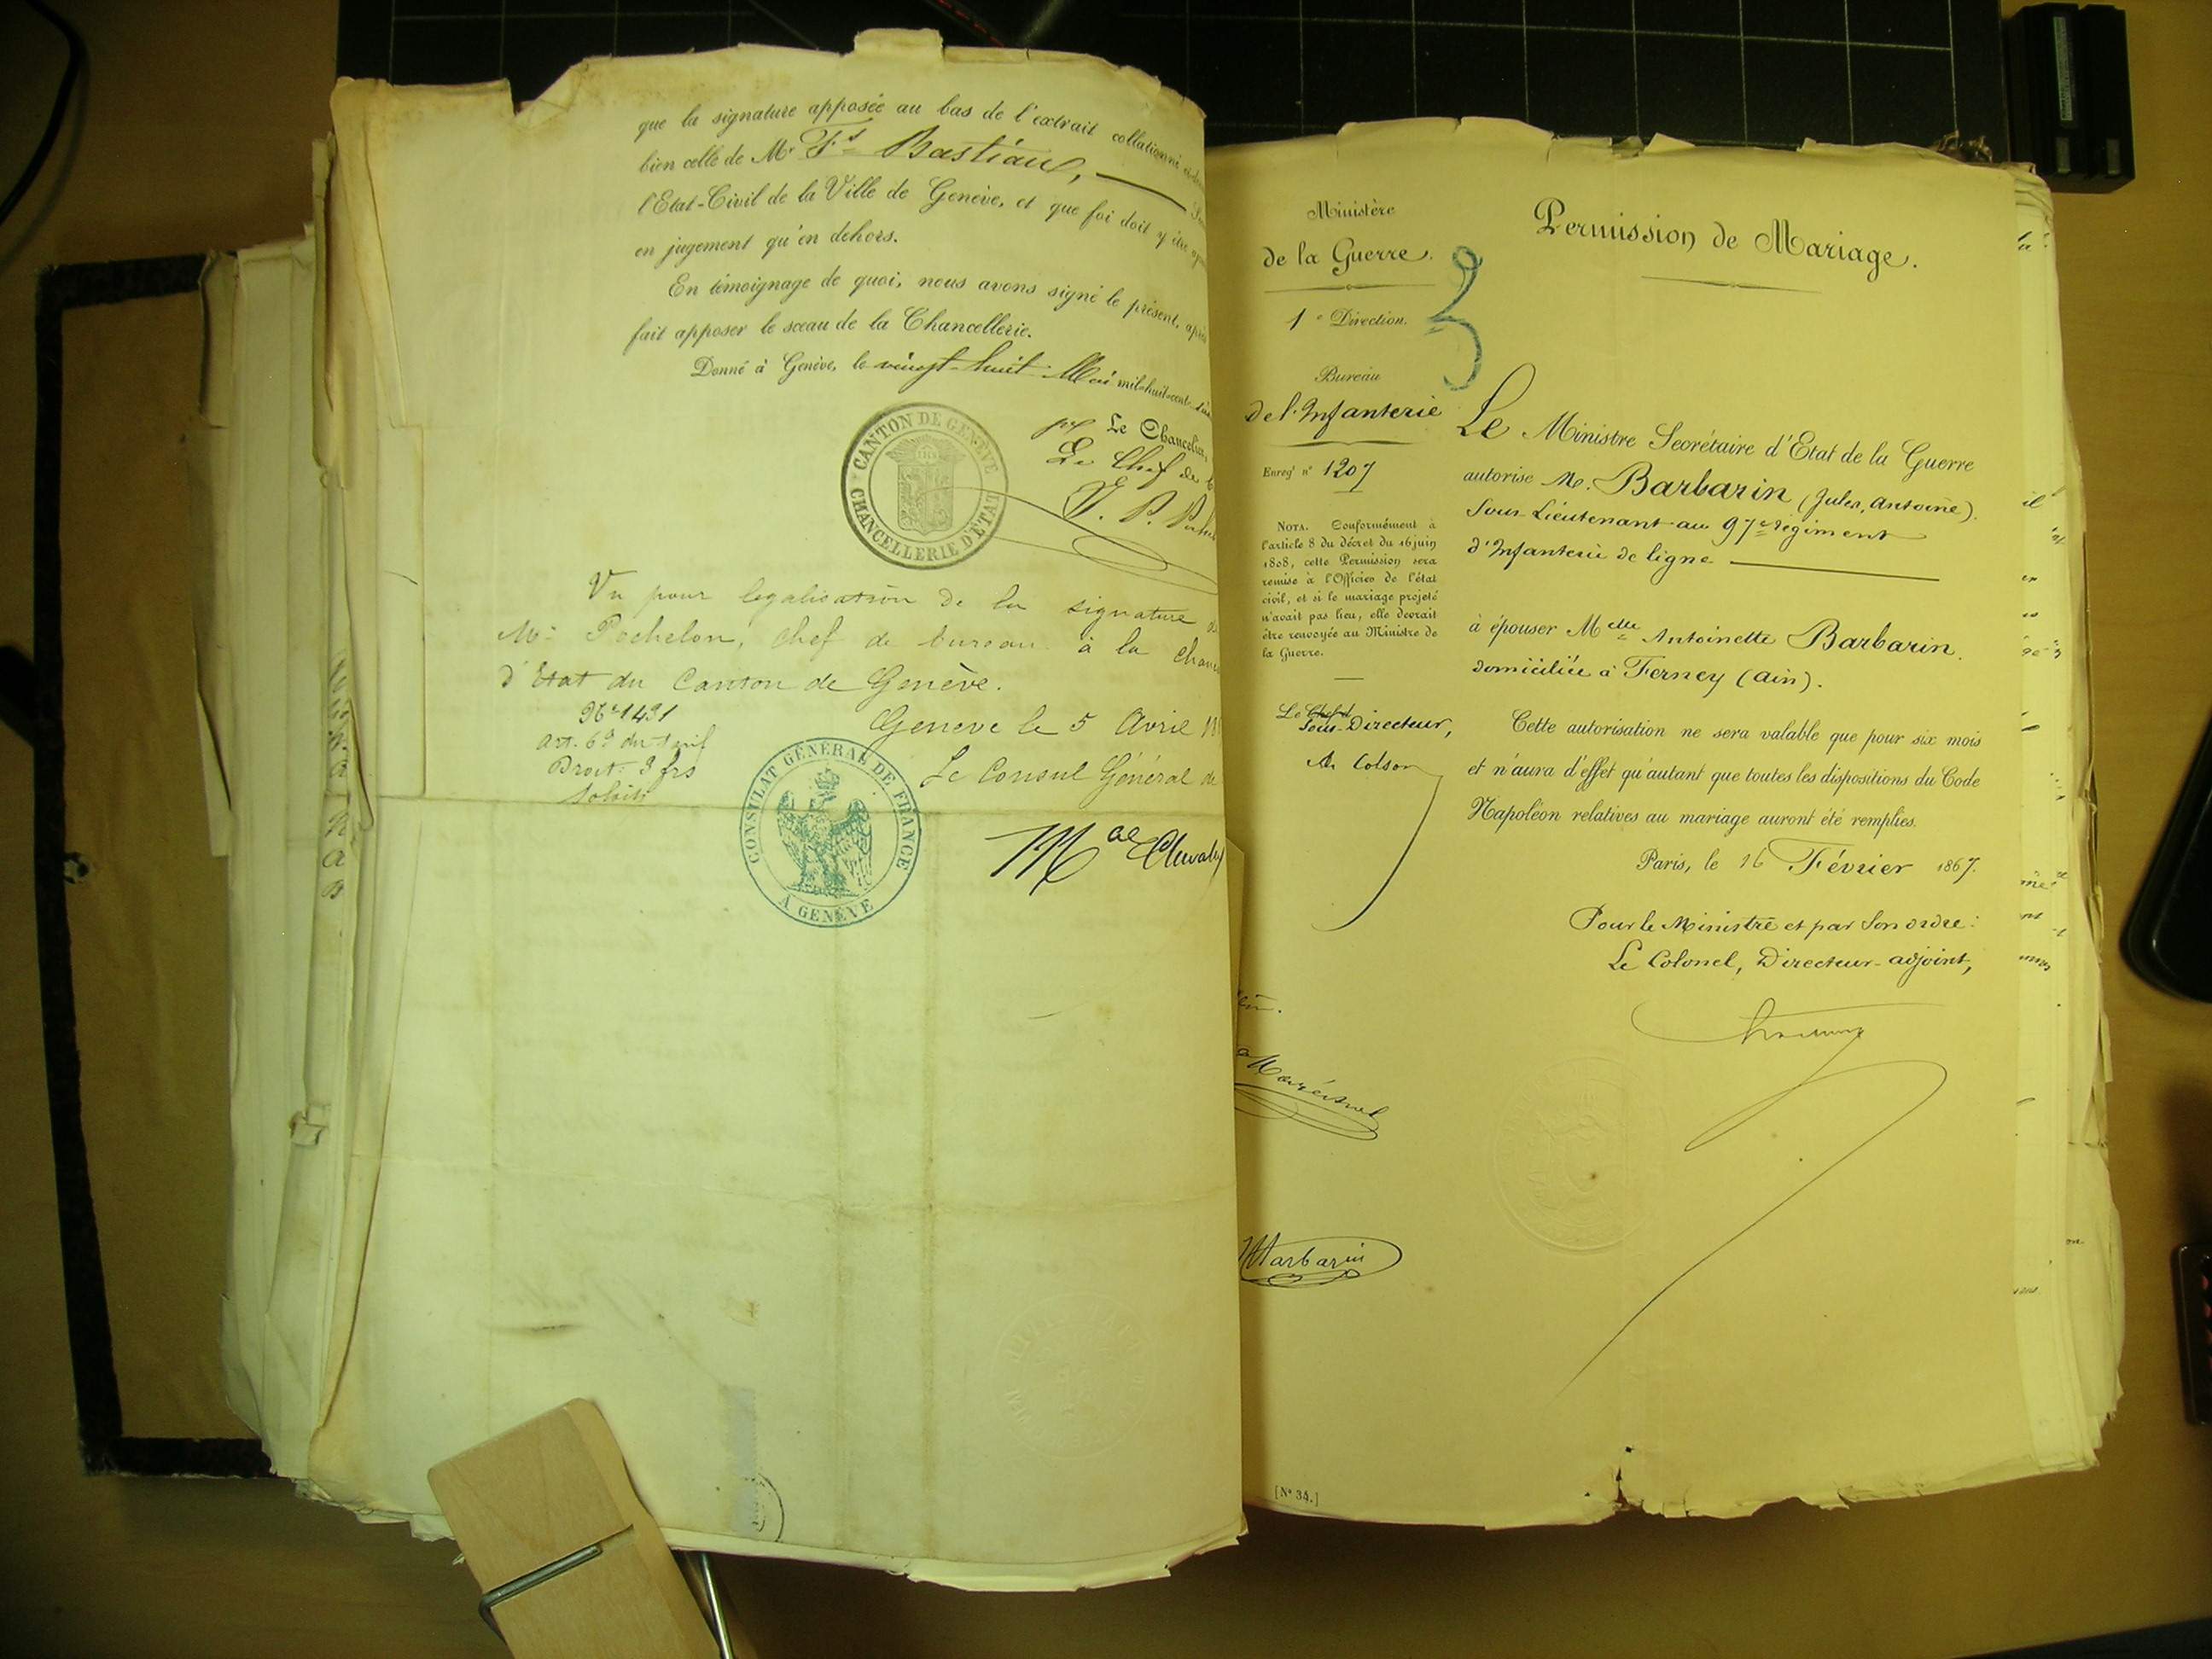 que la signature apposée au bas de l'extrait collationné
bien celle de Mr Fs Bastian,
l'Etat-Civil de la Ville de Genève, et que foi doit y être
en jugement qu'en dehors.
En témoignage de quoi, nous avons signé le présent, après
fait apposer le sceau de la Chancellerie.
Donné à Genève, le vingt-huit Mars mil-huit-cent
CANTON DE GENÈVE
CHANCELLERIE D'ÉTAT
Le Chancelier,
Le Chef de
Vu pour legalisation de la signature
Mr Pochelon, chef de bureau à la
d'Etat du Canton de Genève.
No 1431
Art. 69 du tarif
Droit: 3 frs
Genève le 5 Avril
Le Consul Général de
CONSULAT GÉNÉRAL DE FRANCE
A GENÈVE
Ministère
de la Guerre.
1e Direction.
Bureau
de l'Infanterie
Enregt no 1207
NOTA. Conformément à
l'article 8 du décret du 16 juin
1808, cette Permission sera
remise à l'Officier de l'état
civil, et si le mariage projeté
n'avait pas lieu, elle devrait
être renvoyée au Ministre de
la Guerre.
Le Chef d
Sous-Directeur,
A. Colson
Barbarin
[No 34.]
Permission de Mariage.
3
Le Ministre Secrétaire d'Etat de la Guerre
autorise M. Barbarin (Jules, Antoine).
Sous-Lieutenant au 97e régiment
d'Infanterie de ligne
à épouser Melle Antoinette Barbarin.
domiciliée à Ferney (Ain).
Cette autorisation ne sera valable que pour six mois
et n'aura d'effet qu'autant que toutes les dispositions du Code
Napoléon relatives au mariage auront été remplies.
Paris, le 16 Février 1867.
Pour le Ministre et par son ordre:
Le Colonel, Directeur-adjoint,